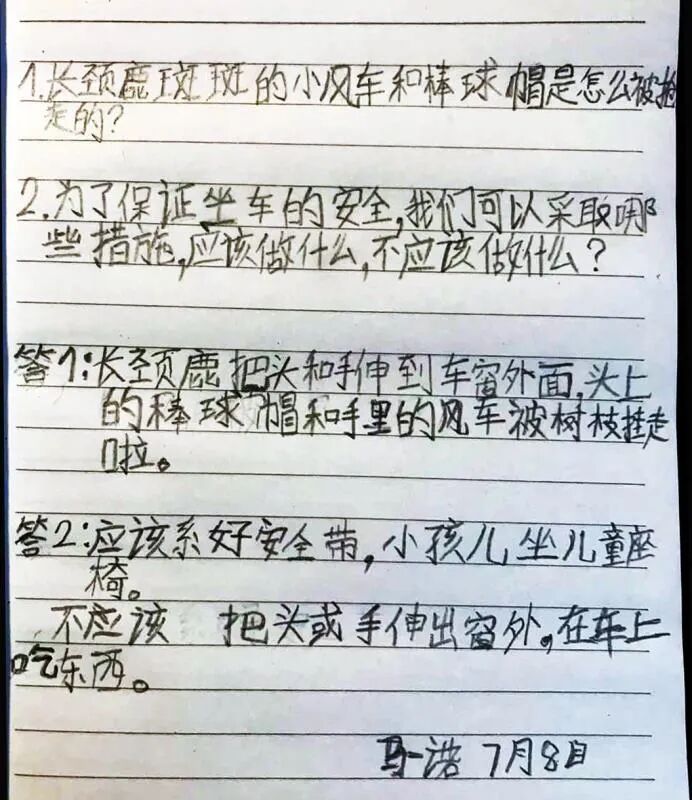 1.长颈鹿斑斑的小风车和棒球帽是怎么被抢
走的?
2.为了保证坐车的安全,我们可以采取哪
些措施,应该做什么,不应该做什么?
答1:长颈鹿把头和手伸到车窗外面,头上
的棒球帽和手里的风车被树枝挂走
啦。
答2:应该系好安全带,小孩儿坐儿童座
椅。
不应该 把头或手伸出窗外,在车上
吃东西。
马一诺 7月8日